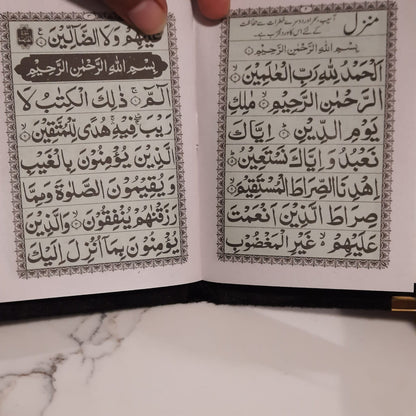 منزل
آسیب، سحر اور دوسرے خطرات سے حفاظت
کے لئے اس کا ورد مجرب ہے۔
بِسْمِ اللهِ الرَّحْمٰنِ الرَّحِيْمِ
اَلْحَمْدُ لِلّٰهِ رَبِّ الْعٰلَمِيْنَ ۙ
الرَّحْمٰنِ الرَّحِيْمِ ۙ مٰلِكِ
يَوْمِ الدِّيْنِ ؕ اِيَّاكَ
نَعْبُدُ وَاِيَّاكَ نَسْتَعِيْنُ ؕ
اِهْدِنَا الصِّرَاطَ الْمُسْتَقِيْمَ ۙ
صِرَاطَ الَّذِيْنَ اَنْعَمْتَ
عَلَيْهِمْ ۙ غَيْرِ الْمَغْضُوْبِ
عَلَيْهِمْ وَلَا الضَّآلِّيْنَ
بِسْمِ اللهِ الرَّحْمٰنِ الرَّحِيْمِ
الٓمّٓ ۚ ذٰلِكَ الْكِتٰبُ لَا
رَيْبَ ۛ فِيْهِ ۛ هُدًى لِّلْمُتَّقِيْنَ ۙ
الَّذِيْنَ يُؤْمِنُوْنَ بِالْغَيْبِ
وَيُقِيْمُوْنَ الصَّلٰوةَ وَمِمَّا
رَزَقْنٰهُمْ يُنْفِقُوْنَ ۙ وَالَّذِيْنَ
يُؤْمِنُوْنَ بِمَاۤ اُنْزِلَ اِلَيْكَ